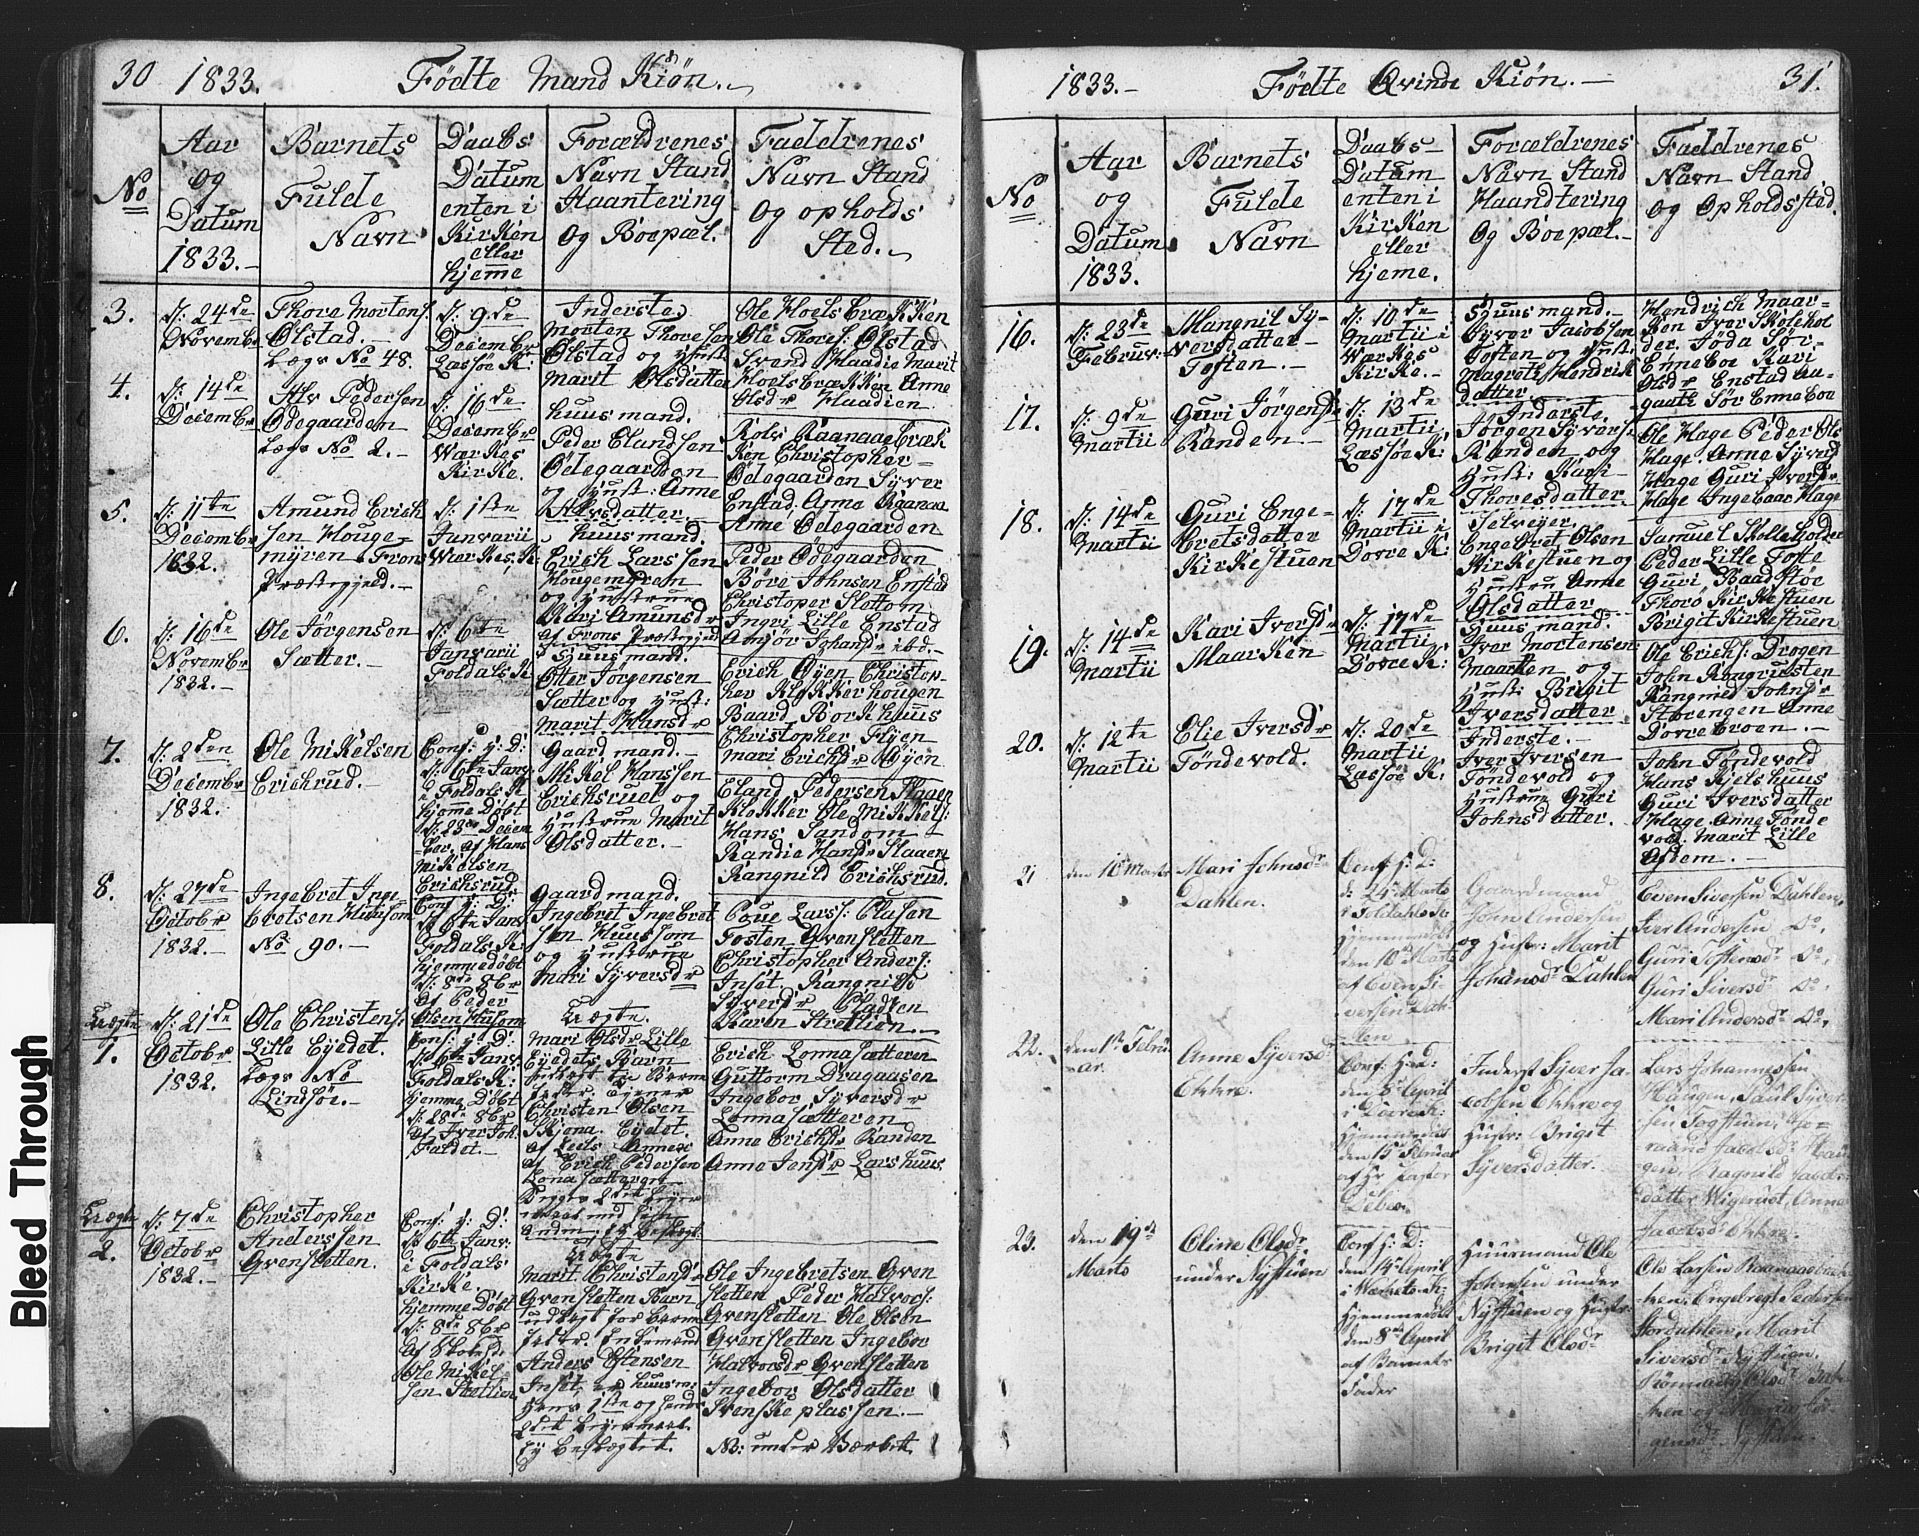 30 1833. Födte Mand Kiön.
No
Aar
og
Datum
1833.
Barnets
Fulde
Navn
Daabs
Datum
enten i
Kirken
eller
hjemme
Forældrenes
Navn Stand
Haantering
Og Boepæl.
Faddrenes
Navn Stand
Og opholds
Sted.
3.
d: 24de
Novembr
Thore Mortens:
Ølstad.
Lægs No 48.
d: 9de
Decembr
Læsjøe K:
Inderste
Morten Thoresen
Ølstad og Hust:
Marit Olsdatter
Ole Hoels Bræk Ken
Ole Thores: Ølstad
Svend Haadie Marit
Hoels Bræk Ken Anne
Olsdr Haadien
4.
d: 14de
Decembr
Alv Pedersen
Ødegaarden
Lægs No 2.
d: 16de
Decembr
Wærkes
Kirke.
huusmand.
Peder Elandsen
Ødegaarden
og Hust: Anne
Alvsdatter.
Rolv Raanaabræk
Ken Christopher
Ødegaarden Syver
Enstad Anne Raanaa
Anne Ødegaarden
5.
d: 11te
Decembr
1832.
Amund Erich
sen Houge
myren Fron
Præstegjeld.
d: 1ste
Janvarii
Wærkes K:
huusmand.
Erich Larssen
Hougemyren
og Hustrue
Kari Amunsdr
af Frons Præstegjeld
Peder Ødegaarden
Böre Johnsen Enstad
Christoper Slottom
Ingri Lille Enstad
Anjör Johansdr ibd.
6.
d: 16de
Novembr
1832.
Ole Jörgensen
Sætter.
d: 6te
Janvarii
Foldals K
Huusmand.
Otter Jörgensen
Sætter og Hust:
Marit Hansdr
Erich Øyen Christop-
her Klokkerhougen
Baard Borkhuus
Christopher Flyen
Mari Erichsdr Øyen
7.
d: 2den
Decembr
1832.
Ole Mikelsen
Erichrud.
Conf: y: D:
d: 6te Janv:
i Foldals K
hjemme Döbt
d: 23de Decem
ber. af Hans
Mikelsen
Erichsrud
Gaardmand.
Mikel Hanssen
Erichsrud og
Hustrue Marit
Olsdatter.
Eland Pedersen Haagen
Klokker Ole Mikkels:
Hans Sandom
Randie Hansdr Slaaen
Rangnild Erichsrud.
8.
d: 27de
Octobr
1832.
Ingebret Inge-
bretsen Huusom
No 90.
Conf: y: D:
d 6te Janv
Foldals K:
hjemmedöbt
d: 8de 8br
af Peder
Olsen Husom
gaardmand.
Ingebret Ingebret
sen Huussom
og hustrue
Mari Syversdr
Poue Larss: Plasen
Tosten Gvensletten
Christopher Anders:
Inset Rangnild
Syversdr Pladsen
Karen Strellien.
Uægte
1.
d: 21de
Octobr
1832.
Ole Christens:
Lille Eyedet.
Lægs No
Lindsöe.
Conf: y: D:
d 6te Janv
Foldals K:
hjemme Döbt
d: 28de 8br
af Iver Joh.
Faldet.
Uægte.
Mari Olsdr Lille
Eyedets Barn
Christen Olsen
Skjona. Eyedet
af Leets Annex
af Erich Pedersen
Erich Lonnasætteren
Guttorm Dragaasen
Ingebor Syversdr
Lonnasætteren
Anne Erichsdr Randen
Anne Jensdr Larshuus
Uægte
2.
d: 7de
Octobr
1832.
Christopher
Anderssen
Gvensletten.
Conf: y: D:
d 6te Janv:
i Foldals
Kirke.
hjemme Döbt
d: 8de 8br
af Skoleh:
Ole Mikel
sen Strellien
Uægte
Marit Christensdr
Gvensletten Barn
udlagt for Barne
fader. Enkemand
Anders Estensen
Inset, er huusm:
hans 1ste og hendes
2det Leyermaal.
Ey beslægtet.
Ole Ingebretsen Gven
sletten Peder Halvors:
Gvensletten Ole Olsen
Gvensletten Ingebor
Halvorsdr Gvensletten
Ingebor Olsdatter
Svenskeplassen.
No: under Værket
1833. Födte Qvinde Kiön. 31.
No
Aar
og
Datum
1833.
Barnets
Fulde
Navn
Daabs
Datum
enten i
Kirken
eller
hjeme.
Forældrenes
Navn Stand
Haandtering
Og Boepæl.
Faddrenes
Navn Stand
og Opholdssted.
16.
d: 23de
Februar:
Mangnil Sy-
versdatter
Toften.
d: 10de
Martii i
Wærkes
Kirke.
Huusmand.
Syver Jacobsen
Toften og Hust:
Magrete Hendrik
datter
Hendrich Maar-
ken Iver Skolehol
der. Töda Sör-
Enneboe Kari
Olsdr Enstad Aa-
gaate Sör Enneboe
17.
d: 9de
Martii
Guri Jörgensdr
Randen.
d: 13de
Martii
Læsjøe K:
Inderste
Jörgen Syvers:
Randen og
Hust: Kari
Thoresdatter
Ole Hage Peder Ols
Hage. Anne Syversdr
Hage Guri Iversdr
Hage Ingebaar Hage
18.
d: 14de
Martii
Guri Enge-
bretsdatter
Kirkestuen
d: 17de
Martii i
Dovre K:
Selveyer.
Engebret Olsen
Kirkestuen og
Hustrue Anne
Olsdatter
Samuel Skolleholder
Peder Lille Tofte
Guri Baadstöe
Thorö Kirkestuen
Brigit Kirkestuen
19.
d: 14de
Martii
Kari Iversdr
Maarken
d: 17de
Martii
Dovre K:
Huusmand.
Iver Mortensen
Maarken og
Hust: Brigit
Iversdatter
Ole Erichs: Drogen
John Rongrusten
Rangnild Johnsdr
Storengen Anne
Dovrebroen.
20.
d: 12te
Martii
Elie Iversdr
Töndevold.
d: 20de
Martii
Læsjøe K:
Inderste.
Iver Iversen
Töndevold og
Hustrue Guri
Johnsdatter.
John Töndevold
Hans Kjelshuus
Guri Iversdatter
Hage. Anne Tönde
vold. Marit Lille
Asdem.
21
den 10 Marts
Mari Johnsdr
Dahlen.
Conf: y: D:
d: 24de Marts
i Foldahls K:
hjemmedöbt
den 10de Marts
af Even Si-
versen Dah-
len
Gaardmand
John Andersen
og Hustr: Marit
Johansdr Dahlen
Even Siversen Dahlen,
Iver Andersen Do,
Guri Tostensdr Do,
Guri Siversdr Do,
Mari Andersdr Do,
22.
den 1te Febru-
ar.
Anne Syversdr
Ekkre.
Conf: y: D:
den 8de April
i Dovre K:
hjemmedöbt
den 15de Februar
af Hr Pastor
Debes.
Inderst Syver Ja-
cobsen Ekkre og
Hustr: Brigit
Syversdatter.
Lars Johannessen
Haugen, Paul Syver-
sen Togstuen,
Jacobsdr Hau
gen, Ragnild Jacobs
datter Wigenist, Anne
Jacobsdr Ekkre.
23.
den 19de
Marts
Oline Olsdr.
under Nystuen
Conf: y: D:
den 14de April
i Wærkets K:
hjemmedöbt
den 8de April
af Barnets
Fader
Huusmand Ole
Johnsen under
Nystuen og Hustr:
Brigit Olsdr
Ole Larsen Raanaabræk-
ken. Engebregt Pedersen
Stordahlen, Marit
Siversdr Nystuen.
gensdr Nystuen.
Bleed Through